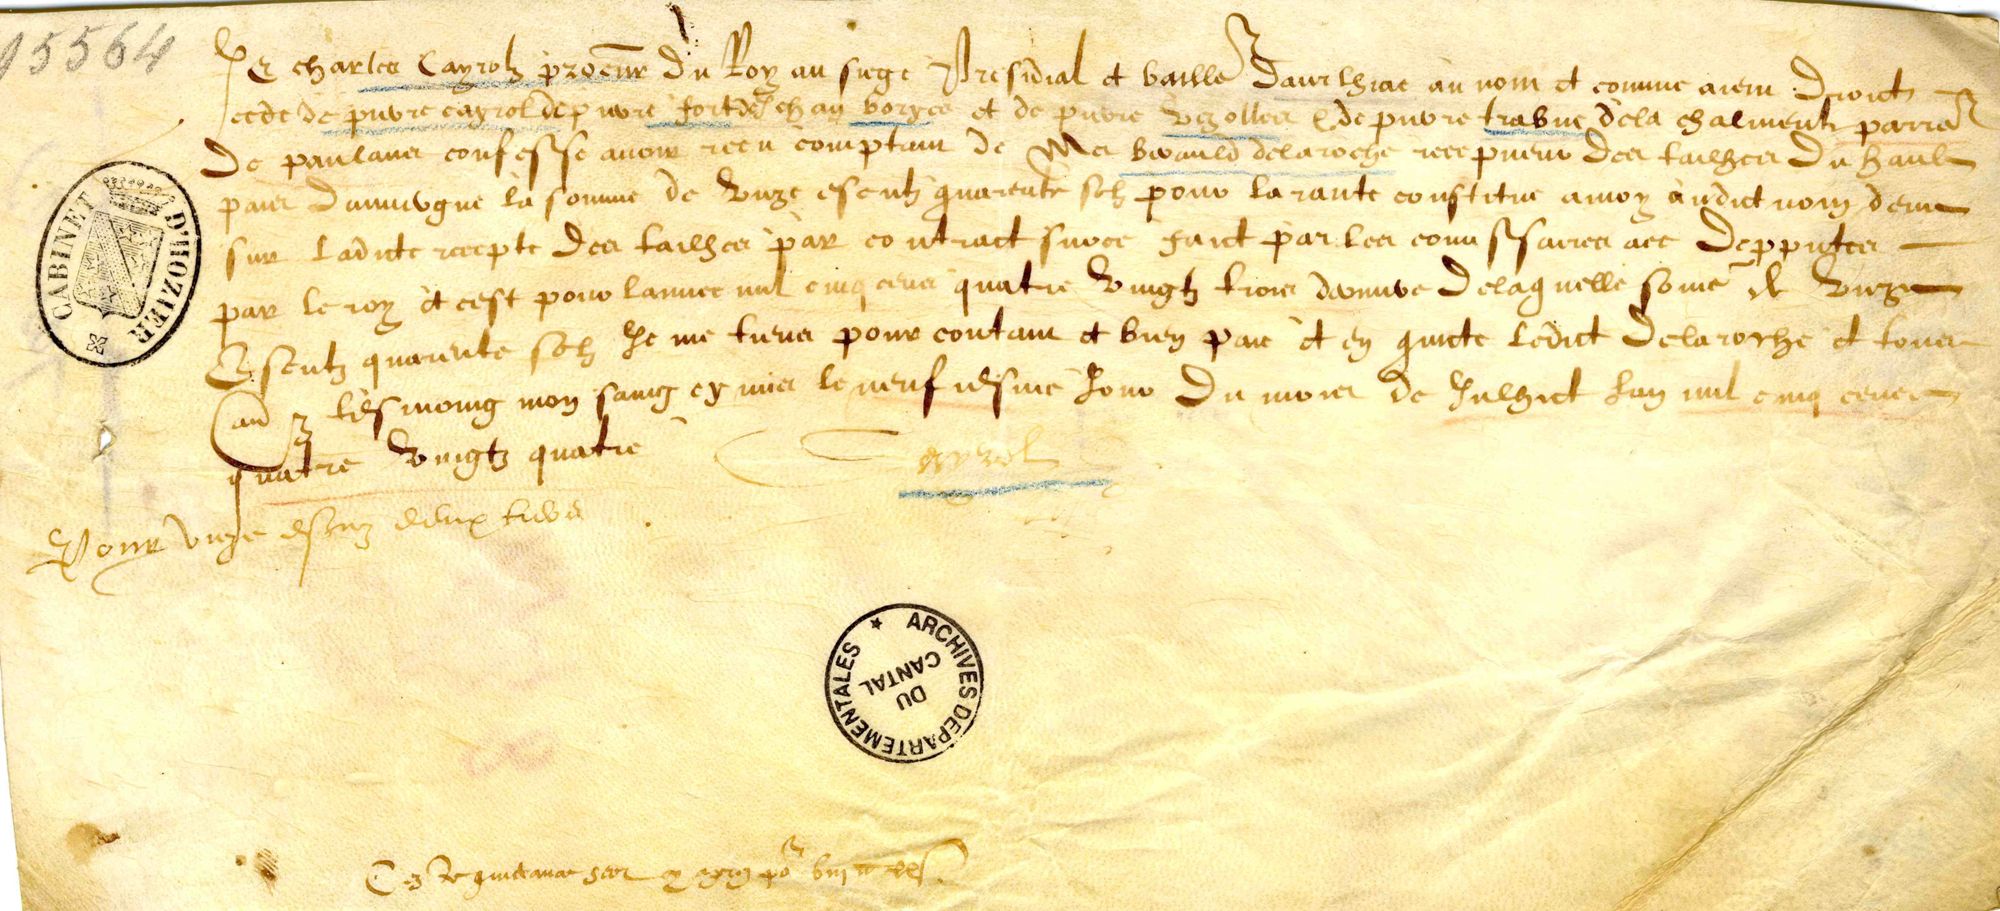 15564
Je Charles Cayrolz proceur du Roy au siege Presidial et baille daurlhac au nom et comme aiem droict
cede de pierre cayrol de pierre et de pierre de pierre trabuc dela
de paulanes confesse avoir receu comptant de Me delaroche recepveur des tailhes du hault
pais dauvergne la somme de unze escutz quarente solz pour la rante constitue a moy audict nom
sur ladicte recepte des tailhes par contract faict par les commissaires depputes
par le roy et cest pour lannee mil cinq cens quatre vingtz trois de laquelle some de unze
escutz quarente solz Je me tiens pour contant et bien paie et en quicte ledict Delaroche et tous
tesmoing mon saing cy mis le neuf iesme Jour du mois de Julhiet lan mil cinq cens
quatre vingtz quatre
Cayrol
Pour unze escuz deux tiers
CABINET D'HOZIER
ARCHIVES DEPARTEMENTALES
DU
CANTAL